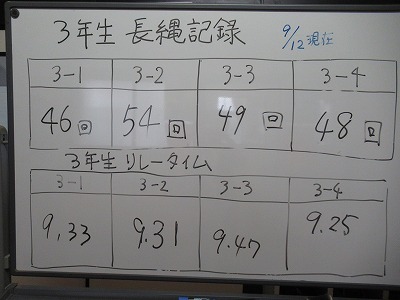 3年生 長縄記録 9/12現在
3-1 3-2 3-3 3-4
46回 54回 49回 48回
3年生 リレータイム
3-1 3-2 3-3 3-4
9.33 9.31 9.47 9.25